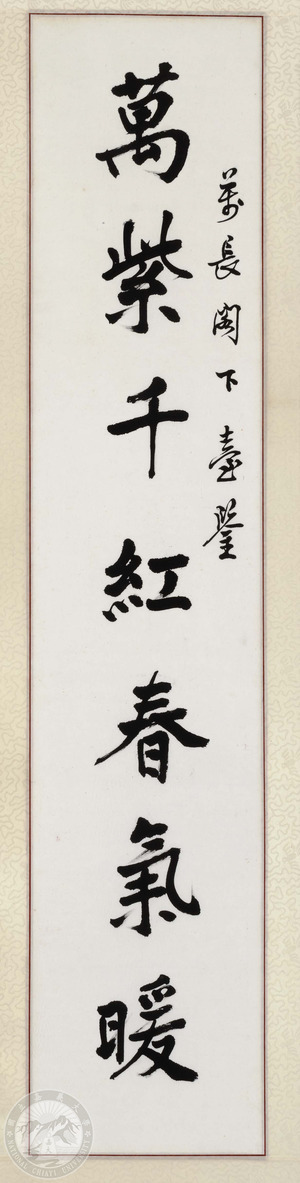 萬長閣下臺鑒
萬紫千紅春氣暖